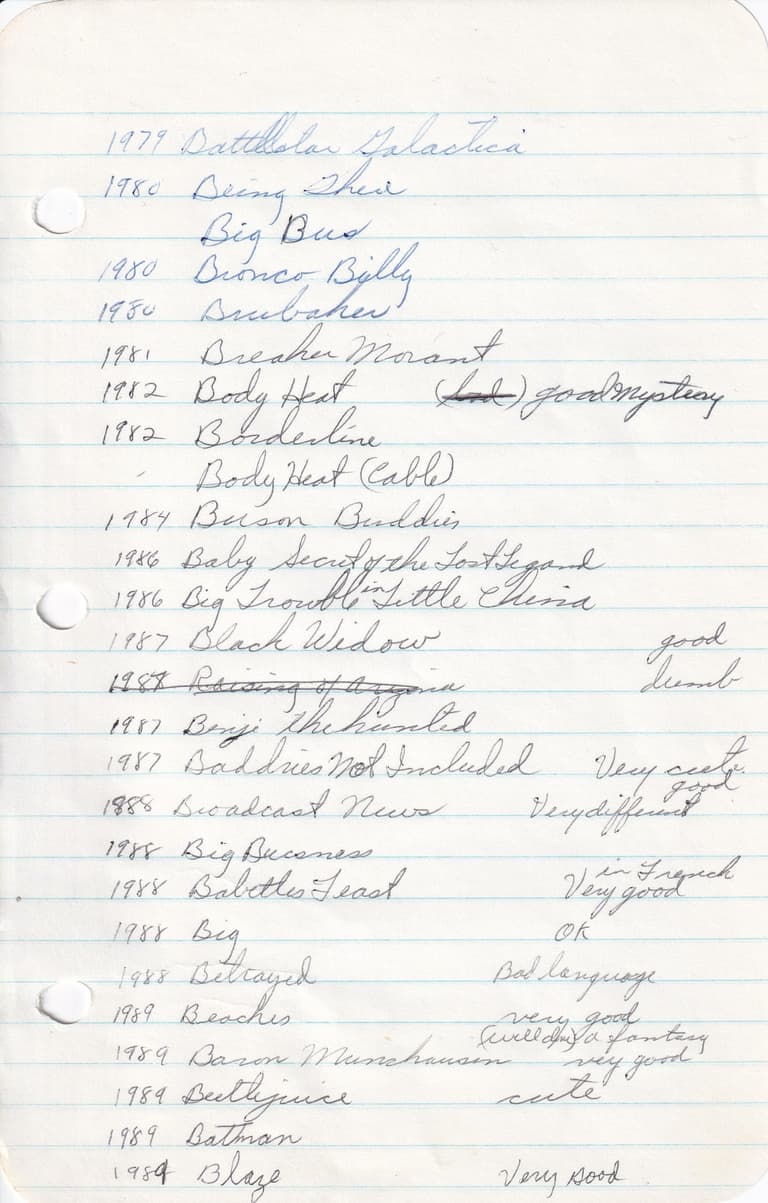 1979 Battlestar Galactica
1980 Being There
Big Bus
1980 Bronco Billy
1980 Brubaker
1981 Breaker Morant
1982 Body Heat (bad) good mystery
1982 Borderline
Body Heat (Cable)
1984 Buson Buddies
1986 Baby Secret of the Lost Legand
1986 Big Trouble in Little China
1987 Black Widow good
1987 Raising of Arizona dumb
1987 Benji the hunted
1987 Baddries Not Included Very cute.
good
1988 Broadcast News Very different
1988 Big Busness
in French
1988 Babettes Feast Very good
1988 Big OK
1988 Betrayed Bad language
1989 Beaches very good
a fantasy
1989 Baron Munchausen very good
1989 Beetlejuice cute
1989 Batman
1989 Blaze Very good